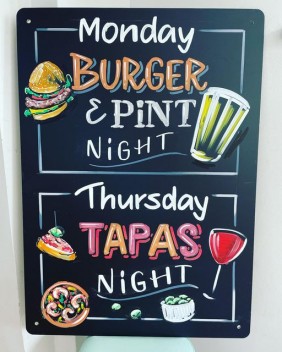 Monday
BURGER
& PiNT
NiGHT
Thursday
TAPAS
NiGHT